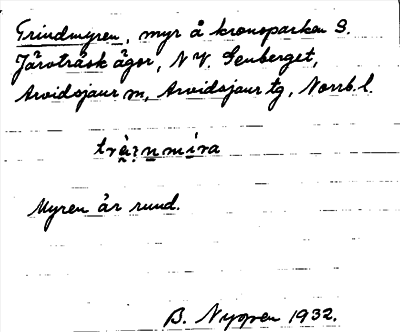 Trindmyren, myr å kronoparken S.
Järvträsk ägor, N V. Senberget,
Arvidsjaur sn, Arvidsjaur tg, Norrb. l.
Myren är rund.
B. Nygren 1932.